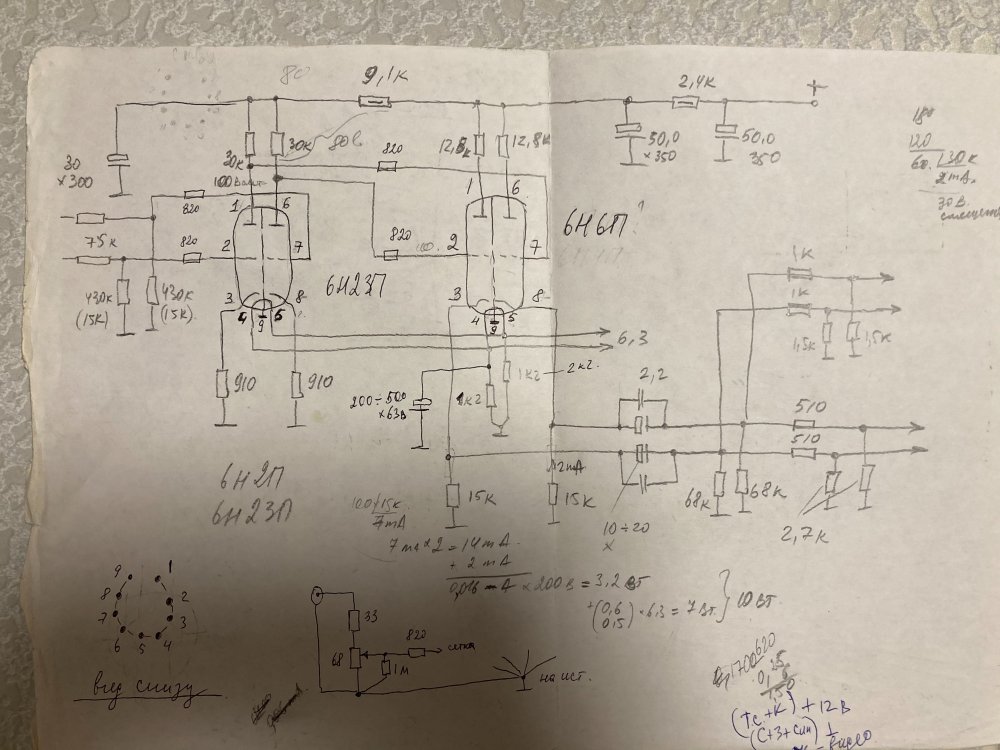 80
9,1к
2,4к
+
180
120
60
30к
2mA
30В
30
×300
30к
30к
80в
820
12,8к
12,8к
50,0
×350
50,0
350
100 Вольт
820
1
6
1
6
6Н6П?
75к
820
2
7
820
2
7
430к
(15к)
430к
(15к)
3
4
9
5
8
6Н23П
3
4
9
5
8
6,3
1к
1к
1,5к
1,5к
910
910
200÷500
×63В
1к2
1к2
2к2
2,2
510
510
6Н2П
6Н23П
15к
2mA
15к
68к
68к
2,7к
10÷20
×
100/15к
7mA
7mA×2=14mA
+ 2mA
0,016 A × 200В = 3,2 Вт
+(0,6 0,5)×6.3=7Вт
10Вт
9
1
8
2
7
3
6
5
4
вид снизу
33
68
820
сетка
1М
на ист.
1700
620
0,25
6
1,50
(тс+к)+12В
(с+3+син)
видео